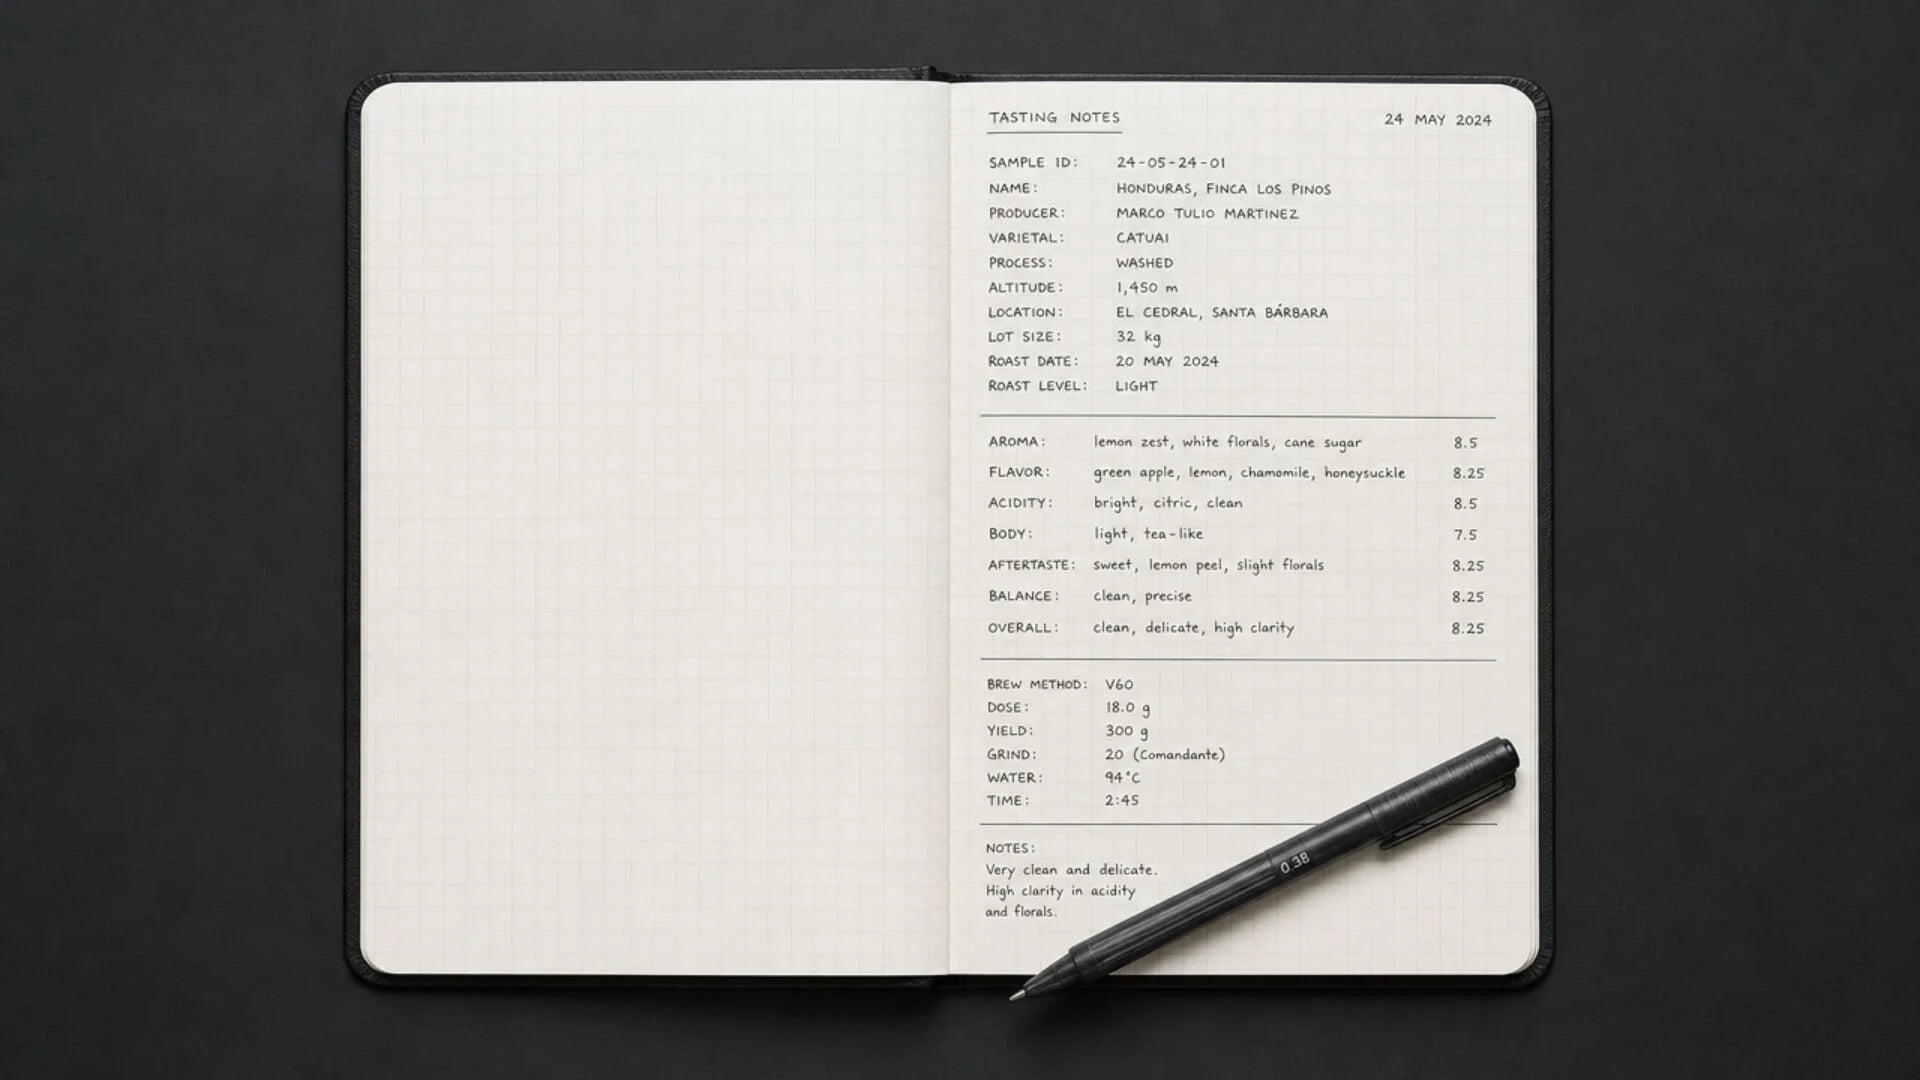 TASTING NOTES 24 MAY 2024
SAMPLE ID: 24-05-24-01
NAME: HONDURAS, FINCA LOS PINOS
PRODUCER: MARCO TULIO MARTINEZ
VARIETAL: CATUAI
PROCESS: WASHED
ALTITUDE: 1,450 m
LOCATION: EL CEDRAL, SANTA BÁRBARA
LOT SIZE: 32 kg
ROAST DATE: 20 MAY 2024
ROAST LEVEL: LIGHT
AROMA: lemon zest, white florals, cane sugar 8.5
FLAVOR: green apple, lemon, chamomile, honeysuckle 8.25
ACIDITY: bright, citric, clean 8.5
BODY: light, tea-like 7.5
AFTERTASTE: sweet, lemon peel, slight florals 8.25
BALANCE: clean, precise 8.25
OVERALL: clean, delicate, high clarity 8.25
BREW METHOD: V60
DOSE: 18.0 g
YIELD: 300 g
GRIND: 20 (Comandante)
WATER: 94°C
TIME: 2:45
NOTES:
Very clean and delicate.
High clarity in acidity
and florals.
0.38